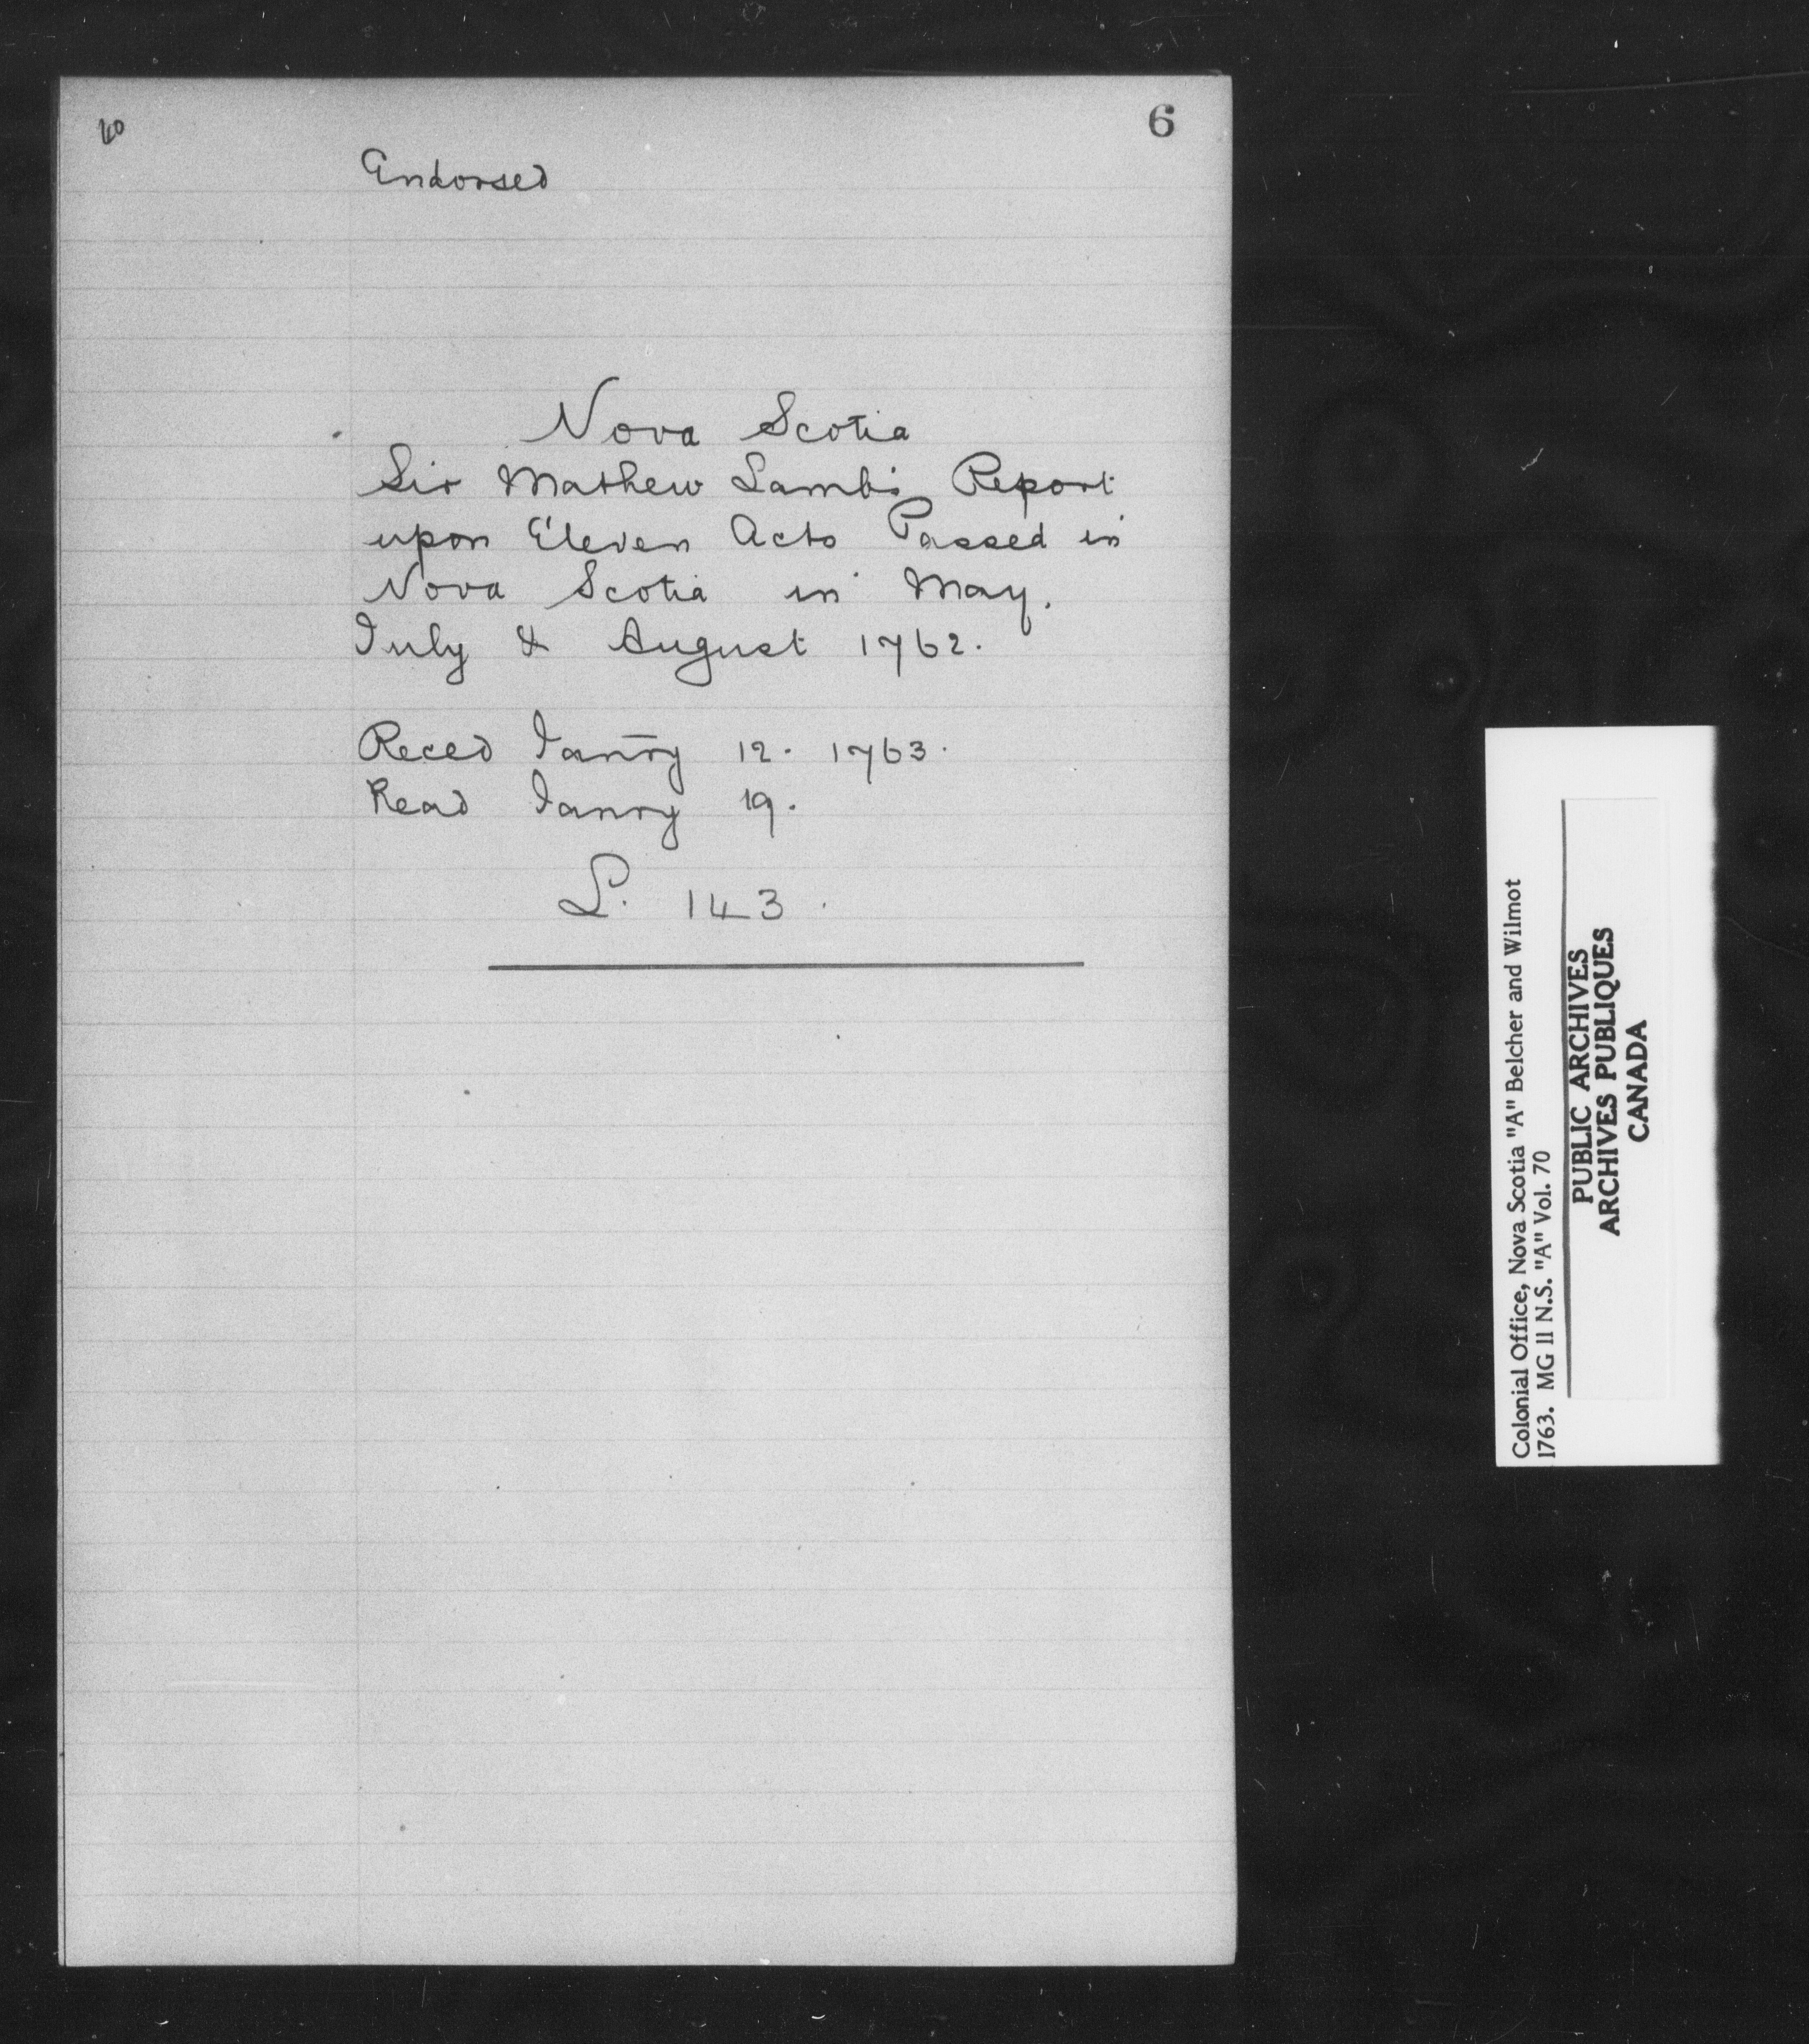 6
Endorsed
Nova Scotia
Sir Mathew Lamb's Report
upon Eleven Acts Passed in
Nova Scotia in May.
July & August 1762.
Reced Janry 12. 1763.
Read Janry 19.
L. 143.
Colonial Office, Nova Scotia "A" Belcher and Wilmot
1763. MG 11 N.S. "A" Vol. 70
PUBLIC ARCHIVES
ARCHIVES PUBLIQUES
CANADA